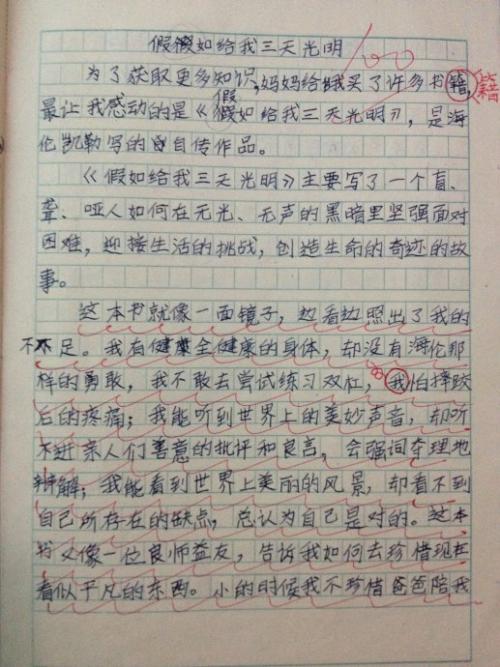 假假如给我三天光明
100
为了获取更多知识，妈妈给我买了许多书籍，籍
假
最让我感动的是《假如给我三天光明》，是海
伦凯勒写的自传作品。
《假如给我三天光明》主要写了一个盲、
聋、哑人如何在无光、无声的黑暗里坚强面对
困难，迎接生活的挑战，创造生命的奇迹的故
事。
这本书就像一面镜子，边看边照出了我的
不不足。我有健康全健康的身体，却没有海伦那
样的勇敢，我不敢去尝试练习双杠，我怕摔跤
后的疼痛；我能听到世界上的美妙声音，却听
不进亲人们善意的批评和良言，会强词夺理地
辩解；我能看到世界上美丽的风景，却看不到
自己所存在的缺点，总认为自己是对的。这本
书又像一位良师益友，告诉我如何去珍惜现在
看似平凡的东西。小的时候我不珍惜爸爸陪我